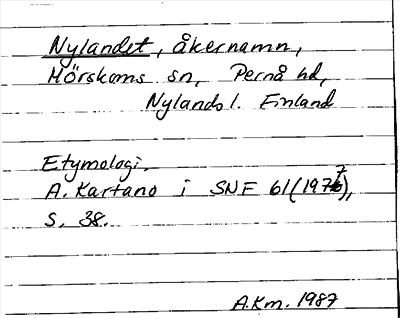 Nylandet, åkernamn,
Mörskoms sn, Pernå hd,
Nylands l. Finland
Etymologi.
A. Kartano i SNF 61(1977),
s. 38.
A.Km. 1987